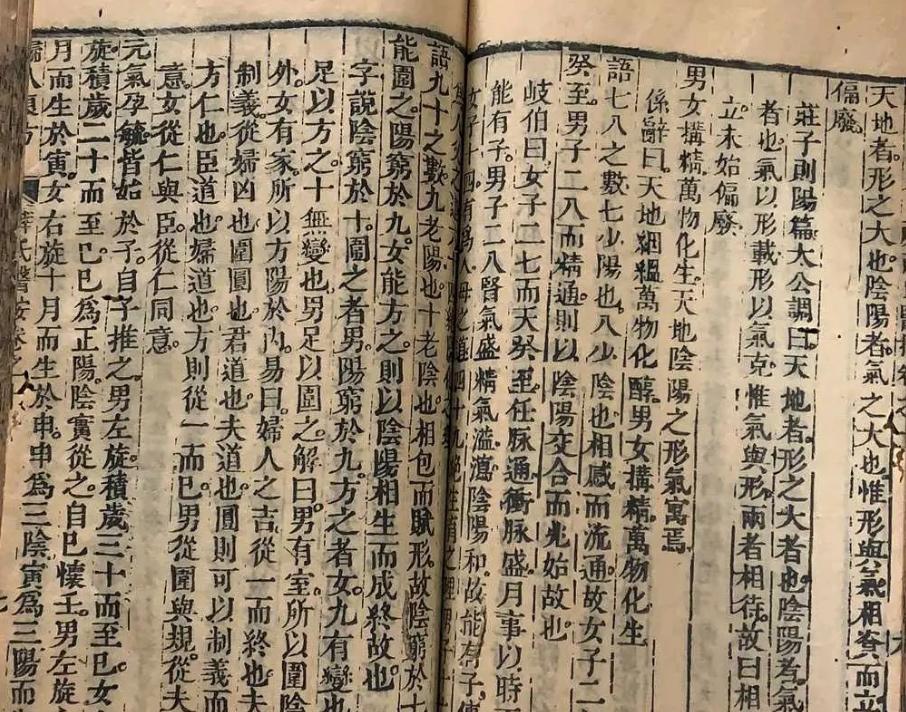 天地者形之大也陰陽者氣之大也惟形與氣相資而立
偏廢
莊子則陽篇大公調曰天地者形之大者也陰陽者氣
者也氣以形載形以氣充惟氣與形兩者相待故曰相
立未始偏廢
男女構精萬物化生天地陰陽之形氣寓焉
係辭曰天地絪緼萬物化醇男女構精萬物化生
語七八之數七少陽也八少陰也相感而流通故女子二
癸至男子二八而精通則以陰陽交合而兆始故也
岐伯曰女子二七而天癸至任脉通衝脉盛月事以時
能有子男子二八腎氣盛精氣溢瀉陰陽和故能有子
語九十之數九老陽也十老陰也相包而賦形故陰窮於十
能圍之陽窮於九女能方之則以陰陽相生而成終故也
字說陰窮於十圍之者男陽窮於九方之者女九有變也
足以方之十無變也男足以圍之解曰男有室所以圍陰
外女有家所以方陽於內易曰婦人之吉從一而終也夫
制義從婦凶也圍圓也君道也夫道也圓則可以制義而
方仁也臣道也婦道也方則從一而已男從圍與規從夫
意女從仁與臣從仁同意
元氣孕毓皆始於子自子推之男左旋積歲三十而至巳女
旋積歲二十而至巳巳爲正陽陰實從之自巳懷壬男左旋
月而生於寅女右旋十月而生於申申爲三陰寅爲三陽而